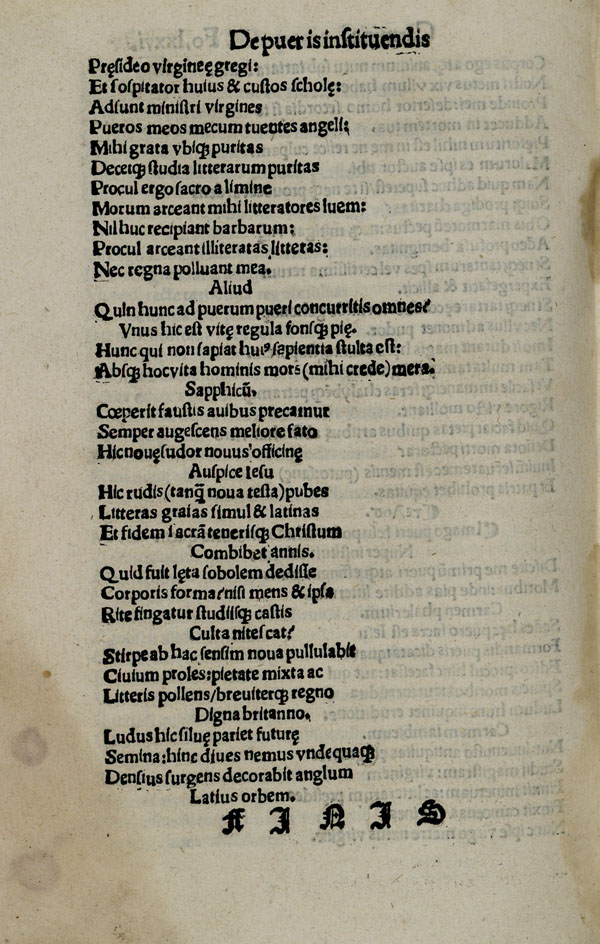 De pueris instituendis
Pręsideo virgineę gregi:
Et sospitator huius & custos scholę:
Adsunt ministri virgines
Pueros meos mecum tuentes angeli:
Mihi grata vbiqꝫ puritas
Decetqꝫ studia litterarum puritas
Procul ergo sacro a limine
Morum arceant mihi litteratores luem:
Nil huc recipiant barbarum:
Procul arceant illiteratas litteras:
Nec regna polluant mea.
Aliud
Quin hunc ad puerum pueri concurritis omnes?
Vnus hic est vitę regula fonsqꝫ pię.
Hunc qui non sapiat huiꝰ sapientia stulta est:
Absqꝫ hoc vita hominis mors (mihi crede) mera.
Sapphicū.
Cœperit faustis auibus precamur
Semper augescens meliore fato
Hic nouę sudor nouus officinę
Auspice Iesu
Hic rudis (tanq̃ noua testa) pubes
Litteras graias simul & latinas
Et fidem sacrā tenerisqꝫ Christum
Combibet annis.
Quid fuit lęta sobolem dedisse
Corporis forma/nisi mens & ipsa
Rite fingatur studiisqꝫ castis
Culta nitescat?
Stirpe ab hac sensim noua pullulabit
Ciuium proles: pietate mixta ac
Litteris pollens/breuiterqꝫ regno
Digna britanno.
Ludus hic siluę pariet futurę
Semina: hinc diues nemus vndequaqꝫ
Densius surgens decorabit anglum
Latius orbem.
F I N I S